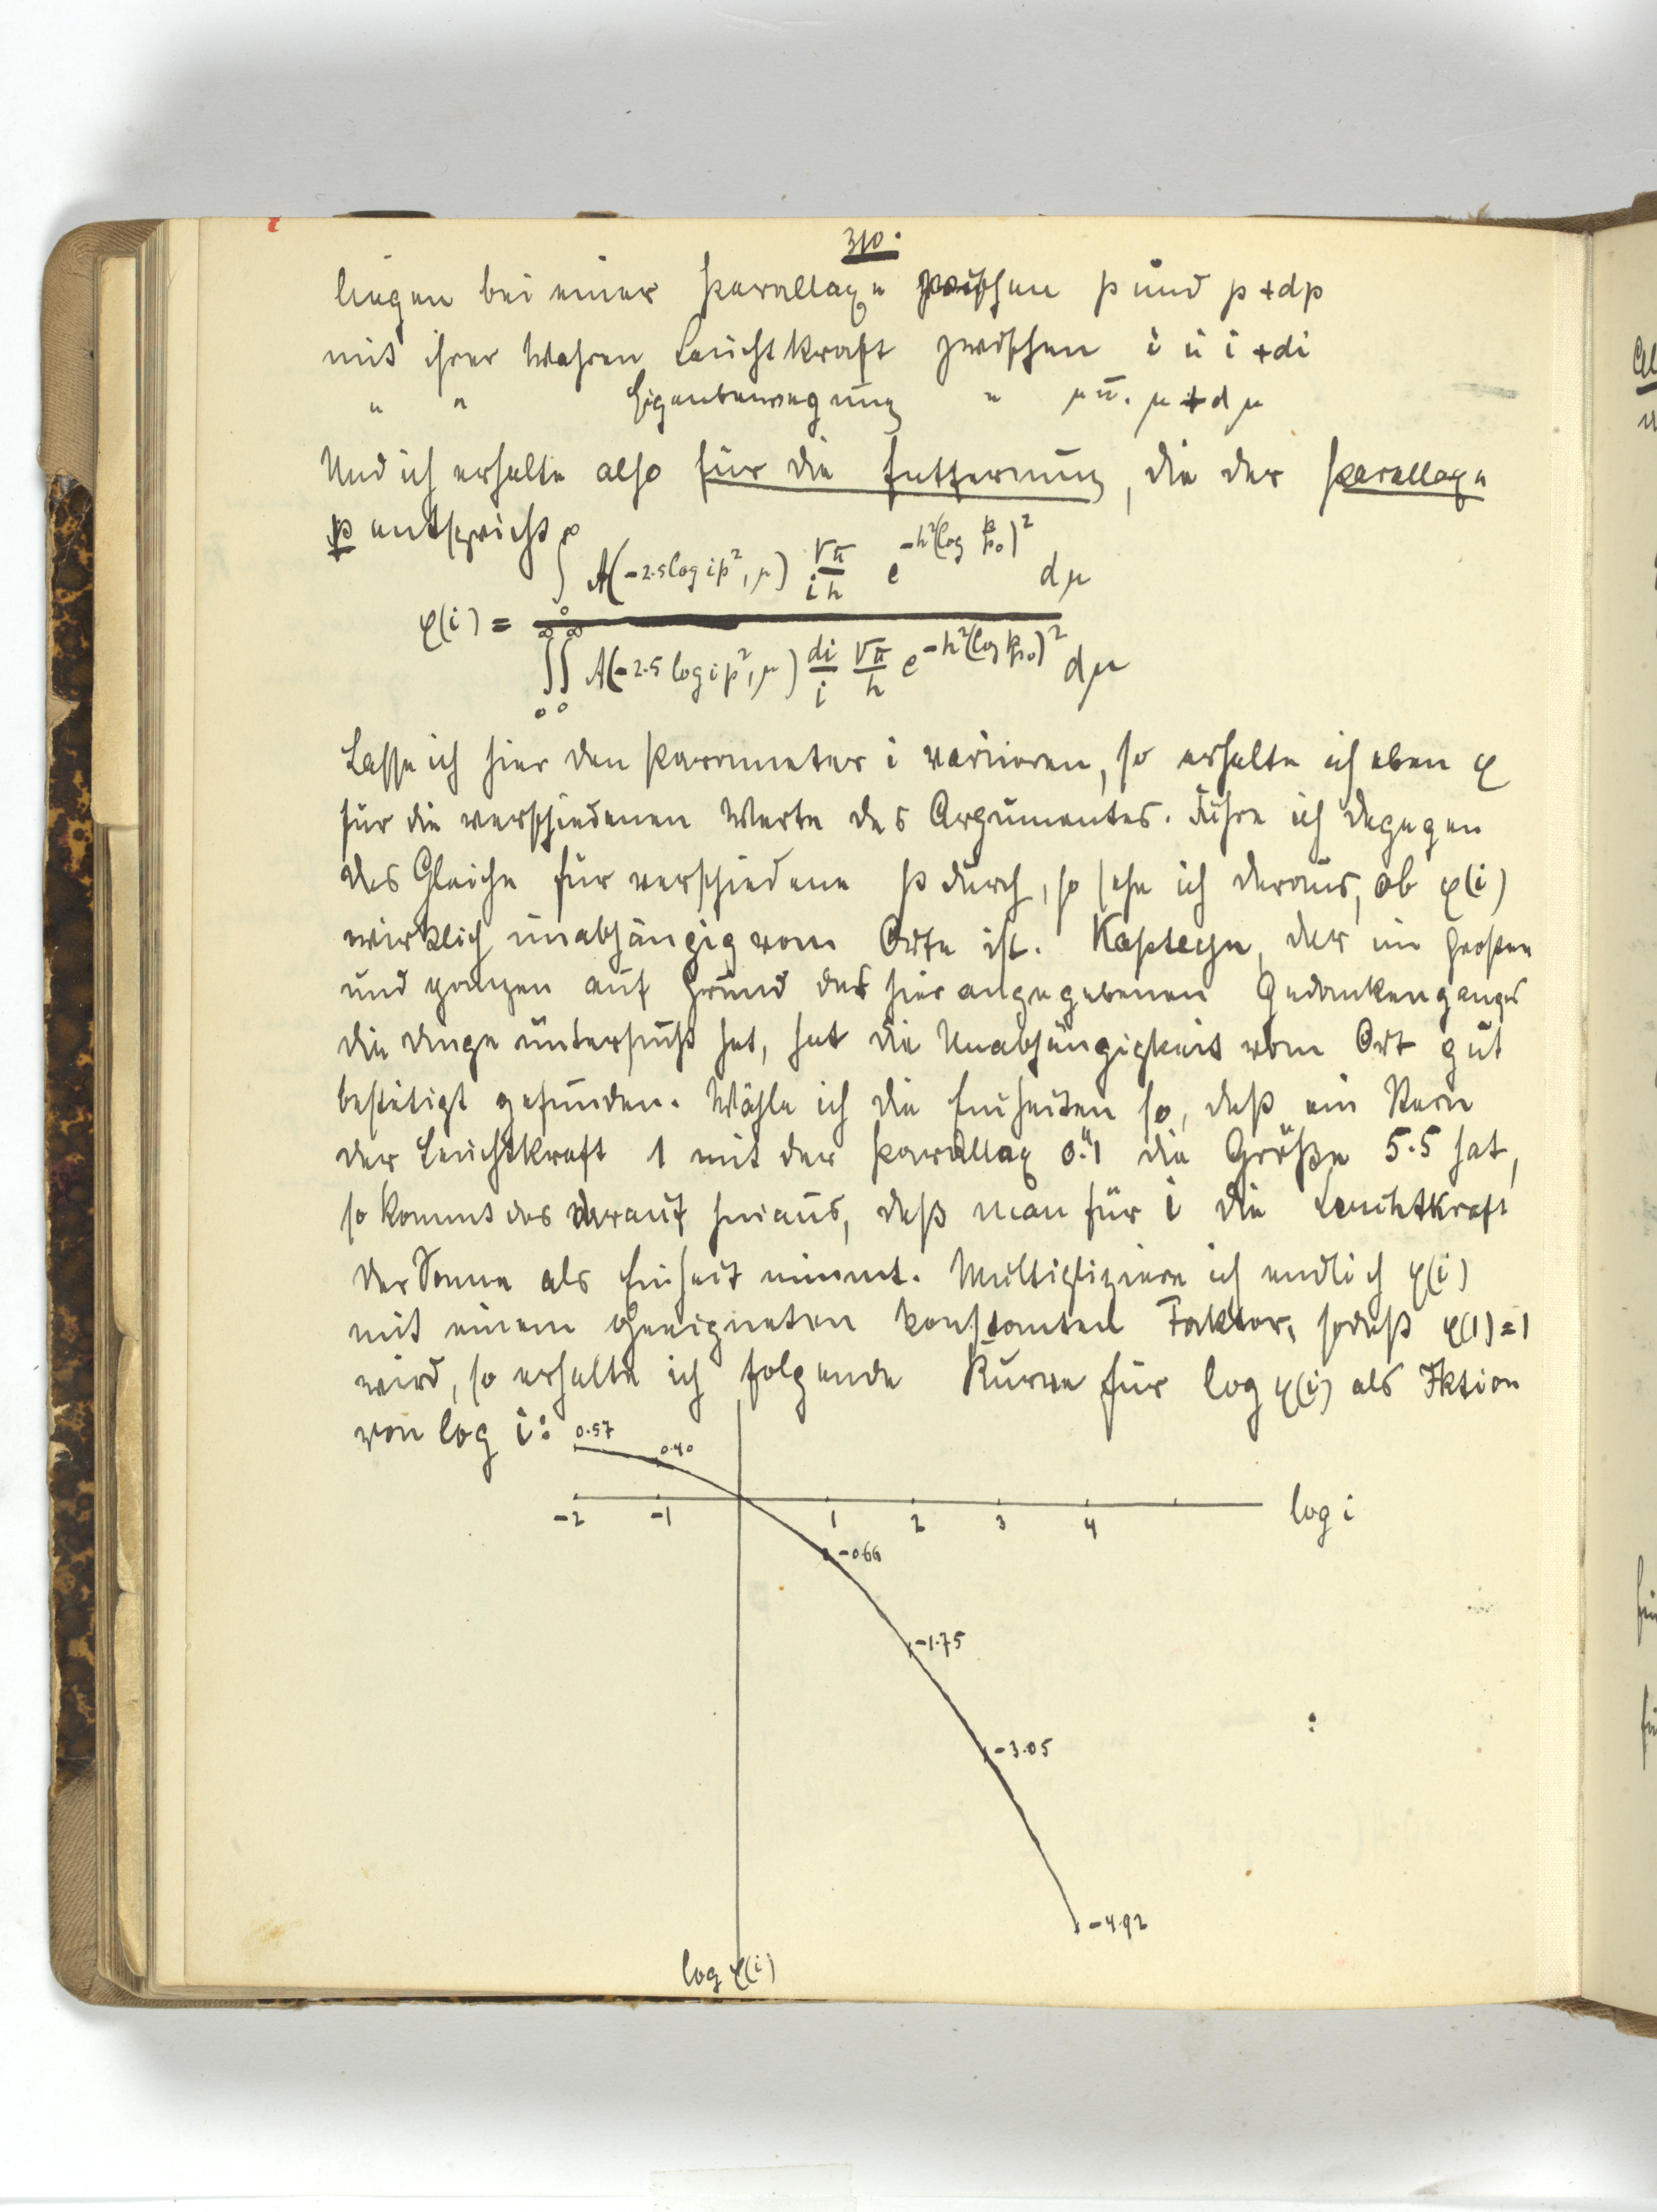 310.
liegen bei einer Parallaxe zwischen p und p+dp
mit ihrer wahren Leuchtkraft zwischen i u i+di
" " Eigenbewegung " μ u. μ+dμ
Und ich erhalte also für die Entfernung, die der Parallaxe
p entspricht
φ(i) = ∫₀^∞ A(-2.5 log ip², μ) √π/(i h) e^{-h²(log p/p₀)²} dμ
∫₀^∞ ∫₀^∞ A(-2.5 log ip², μ) di/i √π/h e^{-h²(log p/p₀)²} dμ
Lasse ich hier den Parameter i variieren, so erhalte ich eben φ
für die verschiedenen Werte des Argumentes. Führe ich dagegen
das Gleiche für verschiedene p durch, so sehe ich daraus, ob φ(i)
wirklich unabhängig vom Orte ist. Kapteyn, der im Großen
und ganzen auf Grund des hier angegebenen Gedankenganges
die Dinge untersucht hat, hat die Unabhängigkeit vom Ort gut
bestätigt gefunden. Wähle ich die Einheiten so, daß ein Stern
der Leuchtkraft 1 mit der Parallax 0."1 die Größe 5.5 hat,
so kommt das darauf hinaus, daß man für i die Leuchtkraft
der Sonne als Einheit nimmt. Multipliziere ich endlich φ(i)
mit einem geeigneten konstanten Faktor, sodaß φ(1)=1
wird, so erhalte ich folgende Kurve für log φ(i) als Fktion
von log i:
0.57
0.40
-2 -1 1 2 3 4 log i
-0.66
-1.75
-3.05
-4.92
log φ(i)